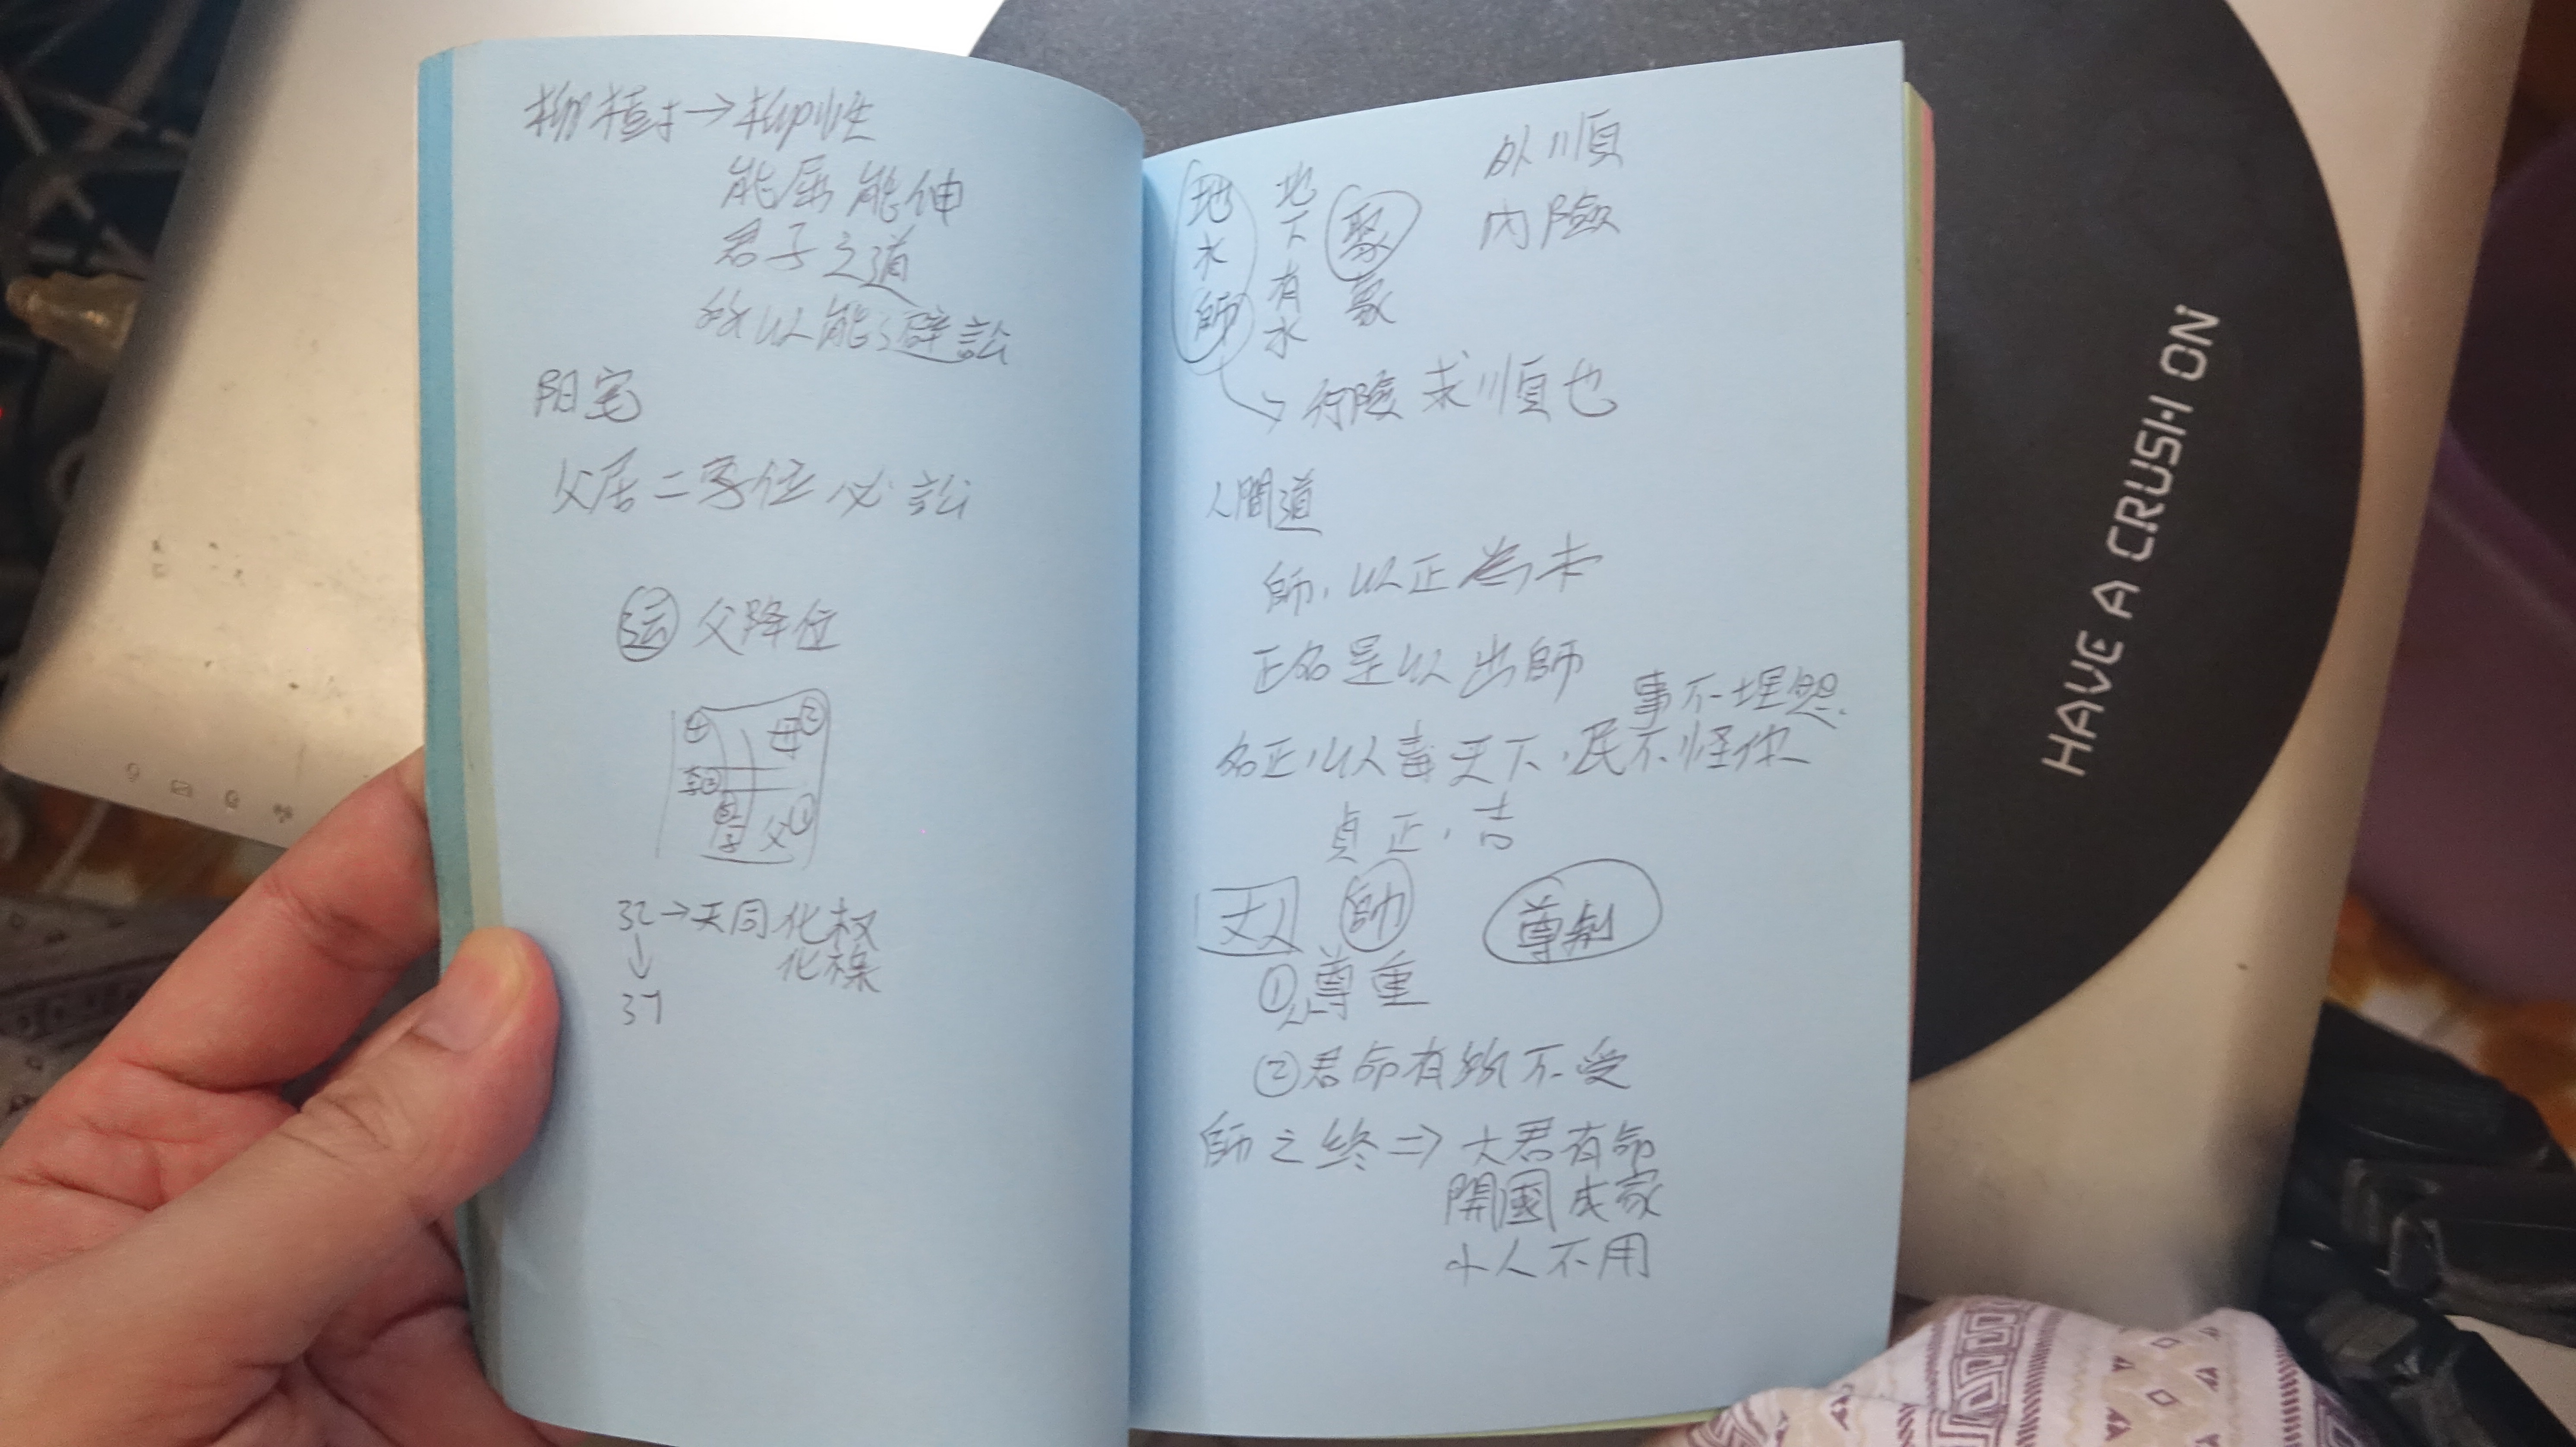 柳樹→柳性
能屈能伸
君子之道
所以能避訟
阳宅
父居二字位必訟
父降位
母②
父①
32→天同化权
化祿
↓
37
地水師
地下有水
聚
象
外順
內險
行險求順也
人間道
師,以正為本
正名是以出師
事不埋怨.
名正,以毒天下,民不怪你
貞正,吉
丈人
帥
尊制
①人尊重
②君命有所不受
師之終⇒大君有命
開國成家
小人不用
HAVE A CRUSH ON